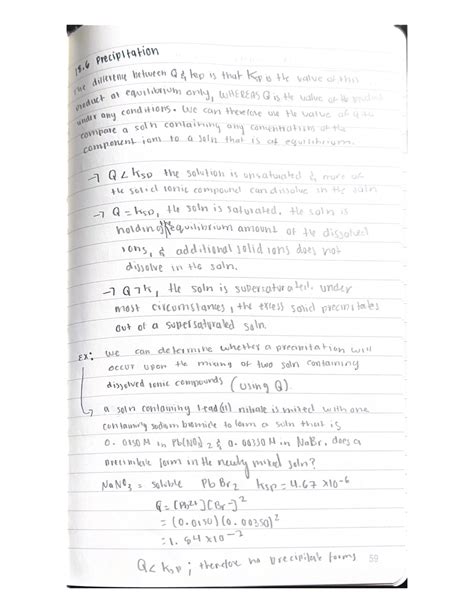 18.6 Precipitation
The difference between Q & Ksp is that Ksp is the value of this
product at equilibrium only, WHEREAS Q is the value of the product
under any conditions. We can therefore use the value of Q to
compare a soln containing any concentrations of the
component ions to a soln that is at equilibrium.
→ Q < Ksp the solution is unsaturated & more of
the solid ionic compound can dissolve in the soln
→ Q = Ksp, the soln is saturated. the soln is
holding the equilibrium amount of the dissolved
ions, & additional solid ions does not
dissolve in the soln.
→ Q > K, the soln is supersaturated. under
most circumstances, the excess solid precipitates
out of a supersaturated soln.
EX: we can determine whether a precipitation will
occur upon the mixing of two soln containing
dissolved ionic compounds (using Q).
→ a soln containing lead(II) nitrate is mixed with one
containing sodium bromide to form a soln that is
0.0150 M in Pb(NO3)2 & 0.00350 M in NaBr. does a
precipitate form in the newly mixed soln?
NaNO3 = soluble PbBr2 Ksp = 4.67 x10-6
Q = [Pb2+][Br-]2
= (0.0150)(0.00350)2
= 1.84 x10-7
Q < Ksp ; therefore no precipitate forms 59